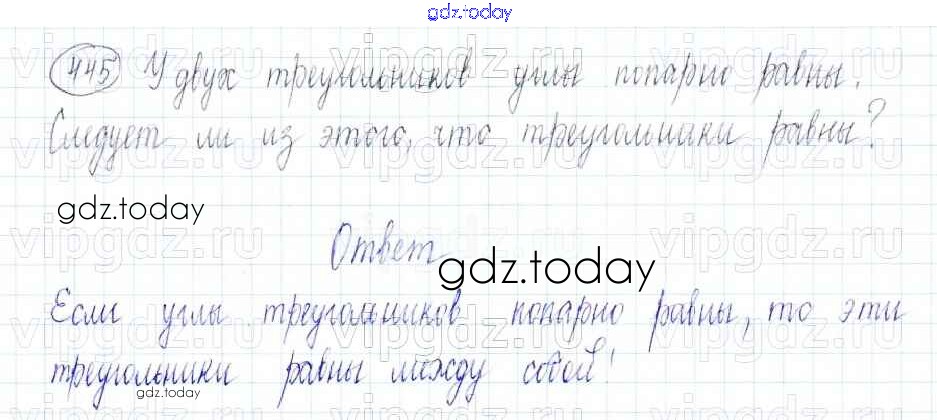 gdz.today
445 У двух треугольников углы попарно равны.
Следует ли из этого, что треугольники равны?
gdz.today
Ответ
gdz.today
Если углы треугольников попарно равны, то эти
треугольники равны между собой!
gdz.today
vipgdz.ru